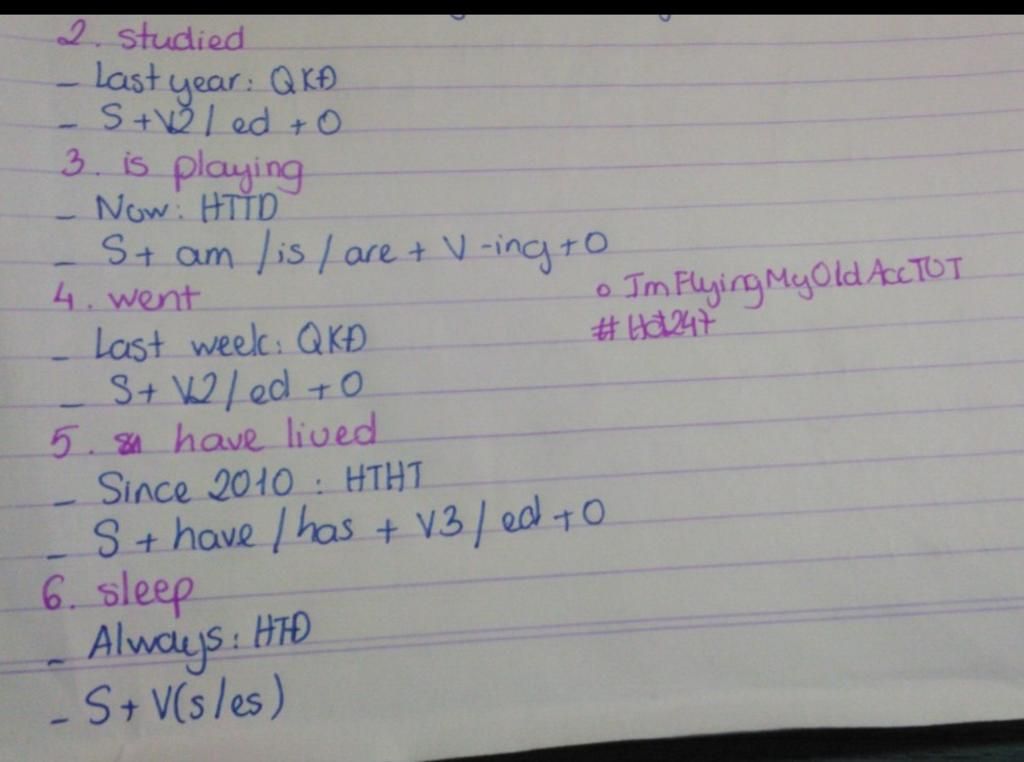 2. studied
- Last year: QKĐ
- S+V2/ed +O
3. is playing
- Now: HTTD
- S+ am /is/are + V-ing+O
4. went
∘ ImFlyingMyOldAccTOT
#Hd247
- Last week: QKĐ
- S+ V2/ed +O
5. have lived
- Since 2010 : HTHT
- S + have/has + V3/ed +O
6. sleep
- Always: HTĐ
- S+ V(s/es)